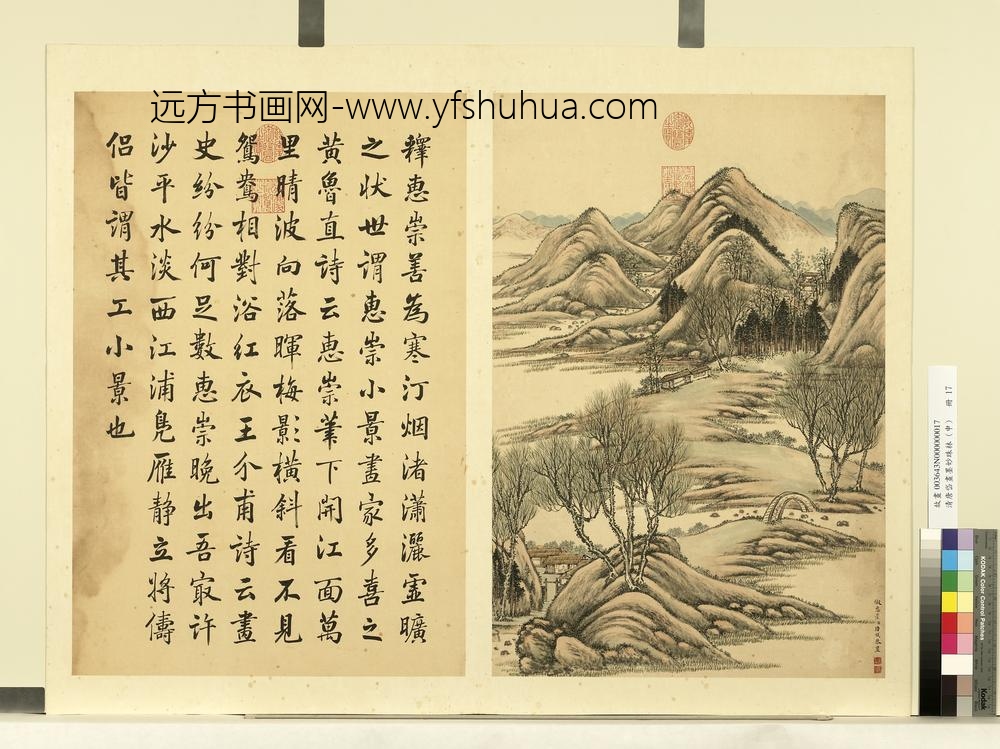 远方书画网-www.yfshuhua.com
釋惠崇善為寒汀烟渚瀟灑虛曠
之狀世謂惠崇小景畫家多喜之
黄魯直詩云惠崇筆下開江面萬
里晴波向落暉梅影橫斜看不見
鴛鴦相對浴紅衣王介甫詩云畫
史紛紛何足數惠崇晚出吾㝡許
沙平水淡西江浦鳧雁静立將儔
侣皆謂其工小景也
故畫 003643N000000017 冊 17
清唐岱畫墨妙珠林（申）
KODAK Color Control Patches
Kodak